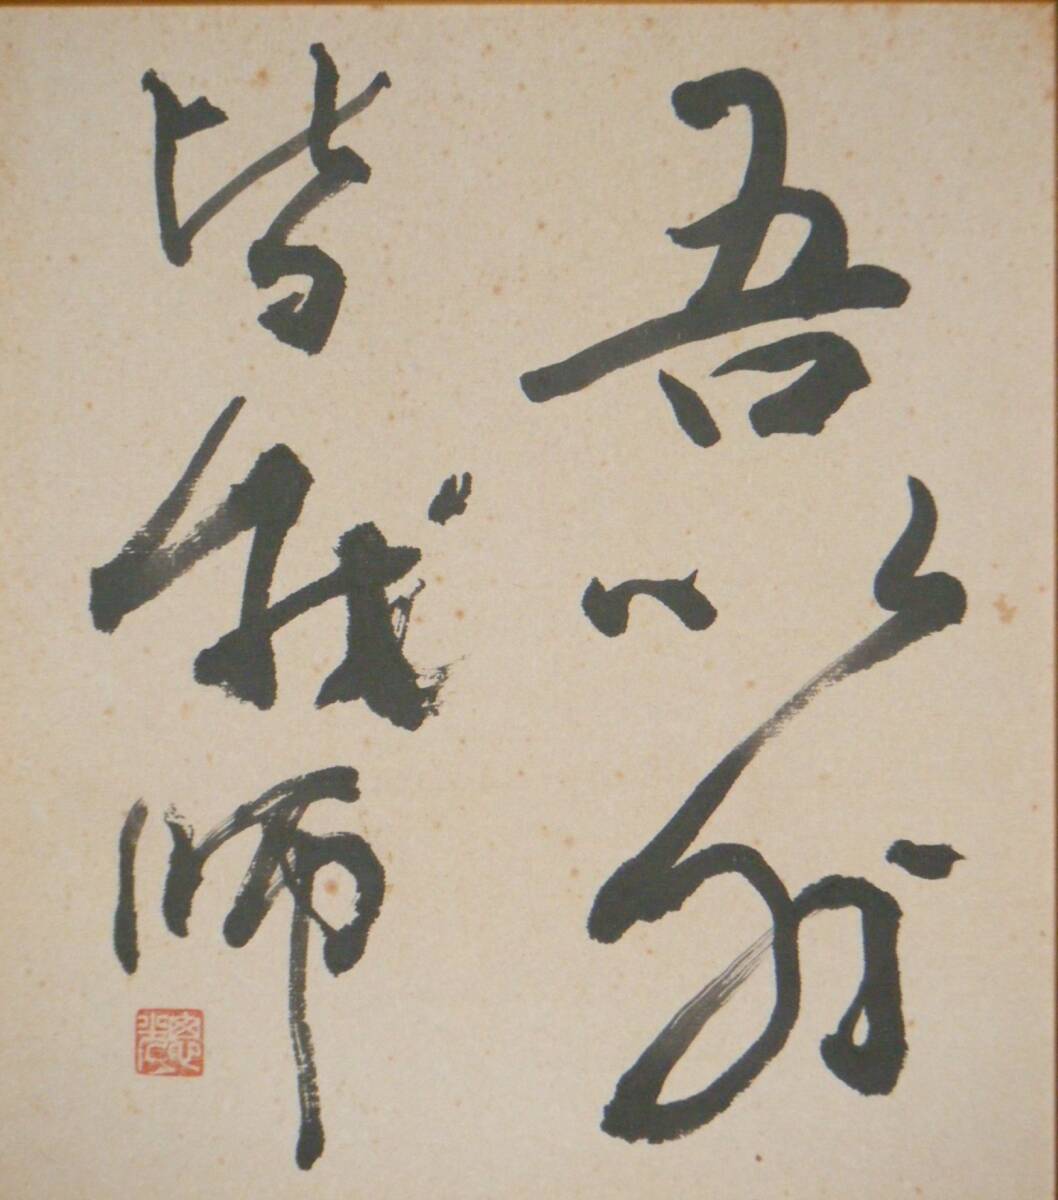 吾以外
皆我師